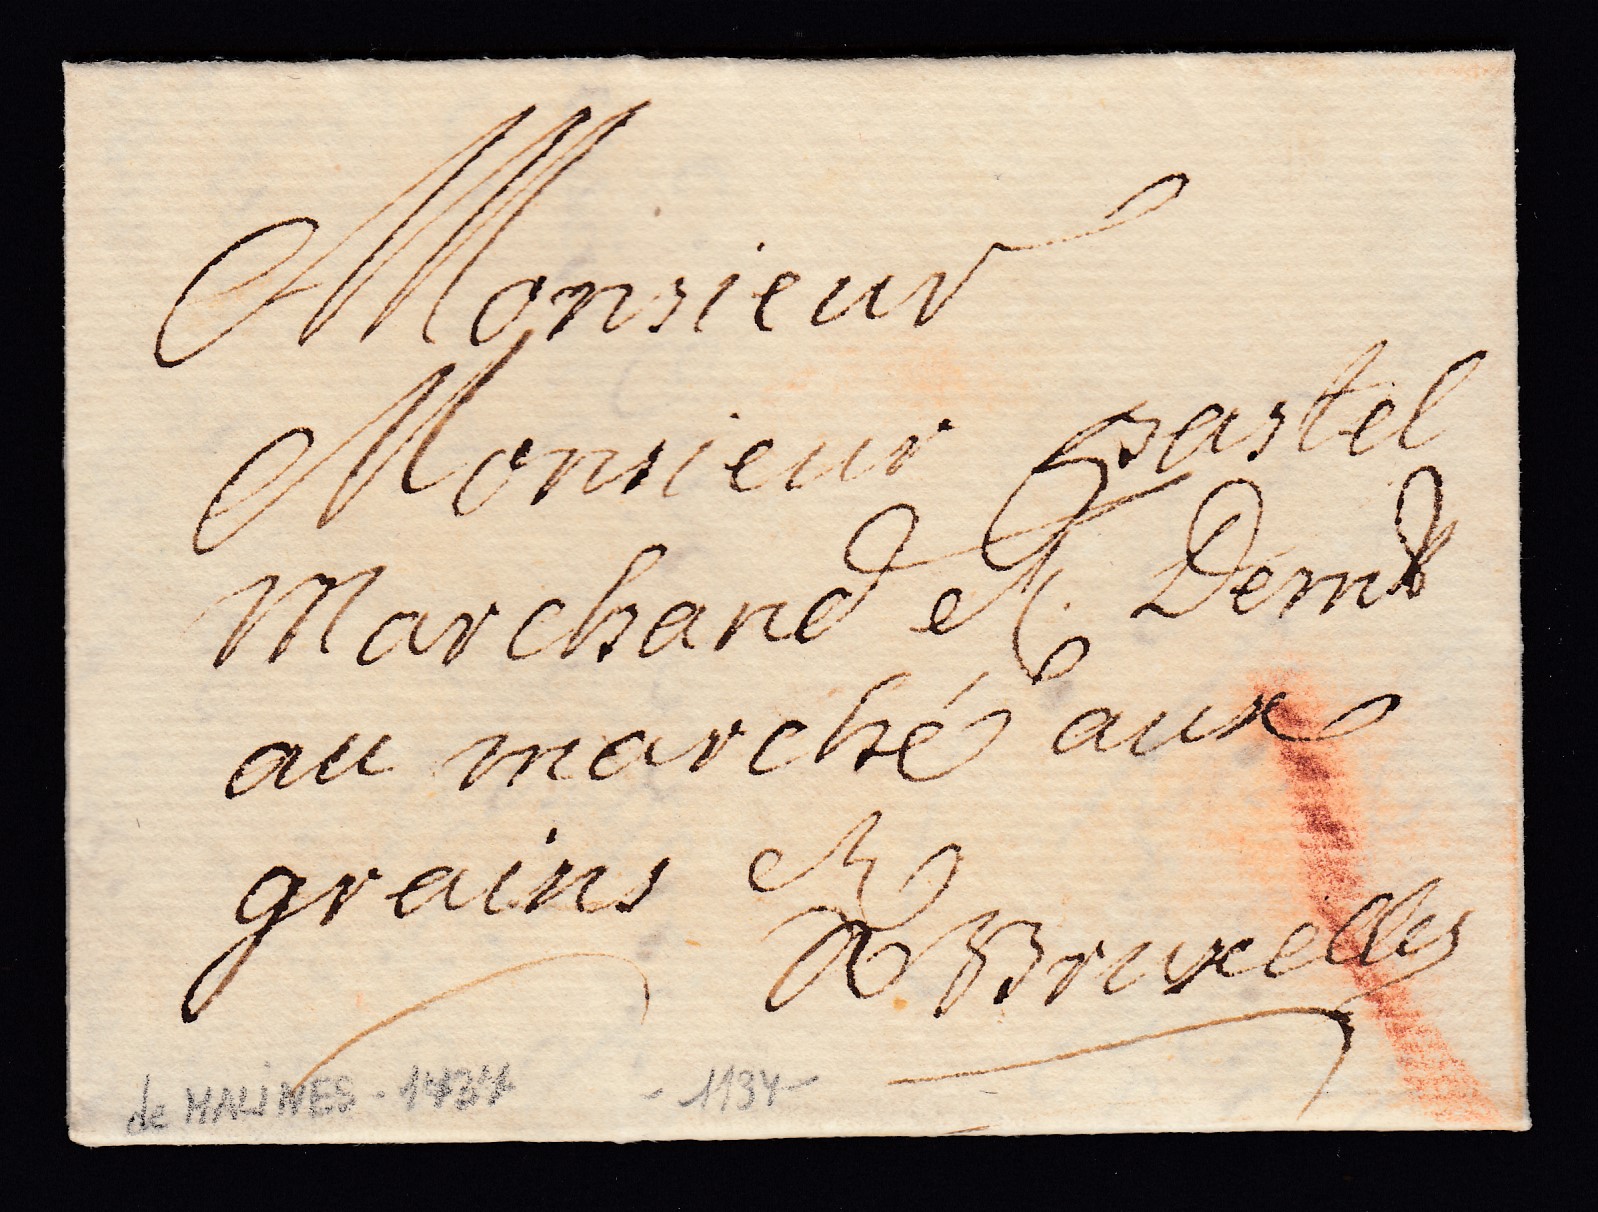 Monsieur
Monsieur Pastel
Marchand et. Demt
au marché aux
grains
A Bruxelles
de MALINES - 1737
- 1737 -